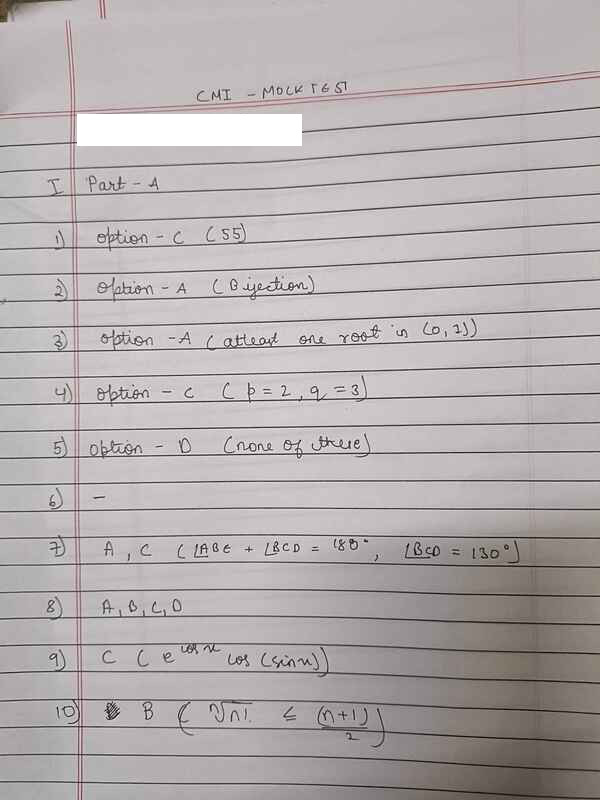 CMI - MOCK TEST
I Part - A
1) option - C (55)
2) option - A (Bijection)
3) option - A (atleast one root in (0,1))
4) option - C (p = 2, q = 3)
5) option - D (none of these)
6) -
7) A, C (∠ABE + ∠BCD = 180°, ∠BCD = 130°)
8) A, B, C, D
9) C (e^cos x cos (sin x))
10) B (ⁿ√n! ≤ (n+1)/2)